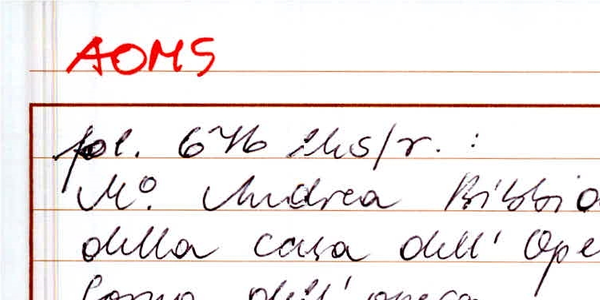 AOMS
fol. 676 lhs/r. :
M.º Andrea Bibbia
della casa dell' Ope
dell' opera